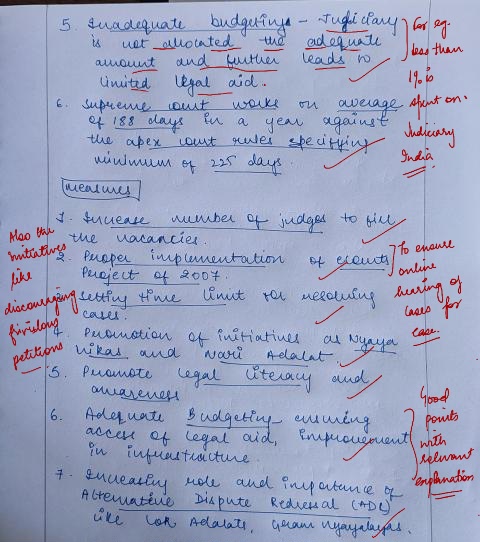 5. Inadequate budgeting - Judiciary
is not allocated the adequate
amount and further leads to
limited legal aid.
For eg.
less than
1% is
spent on
Judiciary
India
6. Supreme court works on average
of 188 days in a year against
the apex court rules specifying
minimum of 225 days.
Measures
1. Increase number of judges to fill
the vacancies.
2. Proper implementation of ecourts
Project of 2007.
To ensure
online
hearing of
cases for
case.
Also the
initiatives
like
discouraging
frivolous
petitions
3. Setting time limit for resolving
cases.
4. Promotion of initiatives as Nyaya
Vikas and Nari Adalat.
5. Promote legal literacy and
awareness
6. Adequate Budgeting ensuring
access of legal aid, Improvement
in infrastructure.
Good
points
with
relevant
explanation
7. Increasing role and importance of
Alternative Dispute Redressal (ADR)
like Lok Adalats, Gram Nyayalayas.